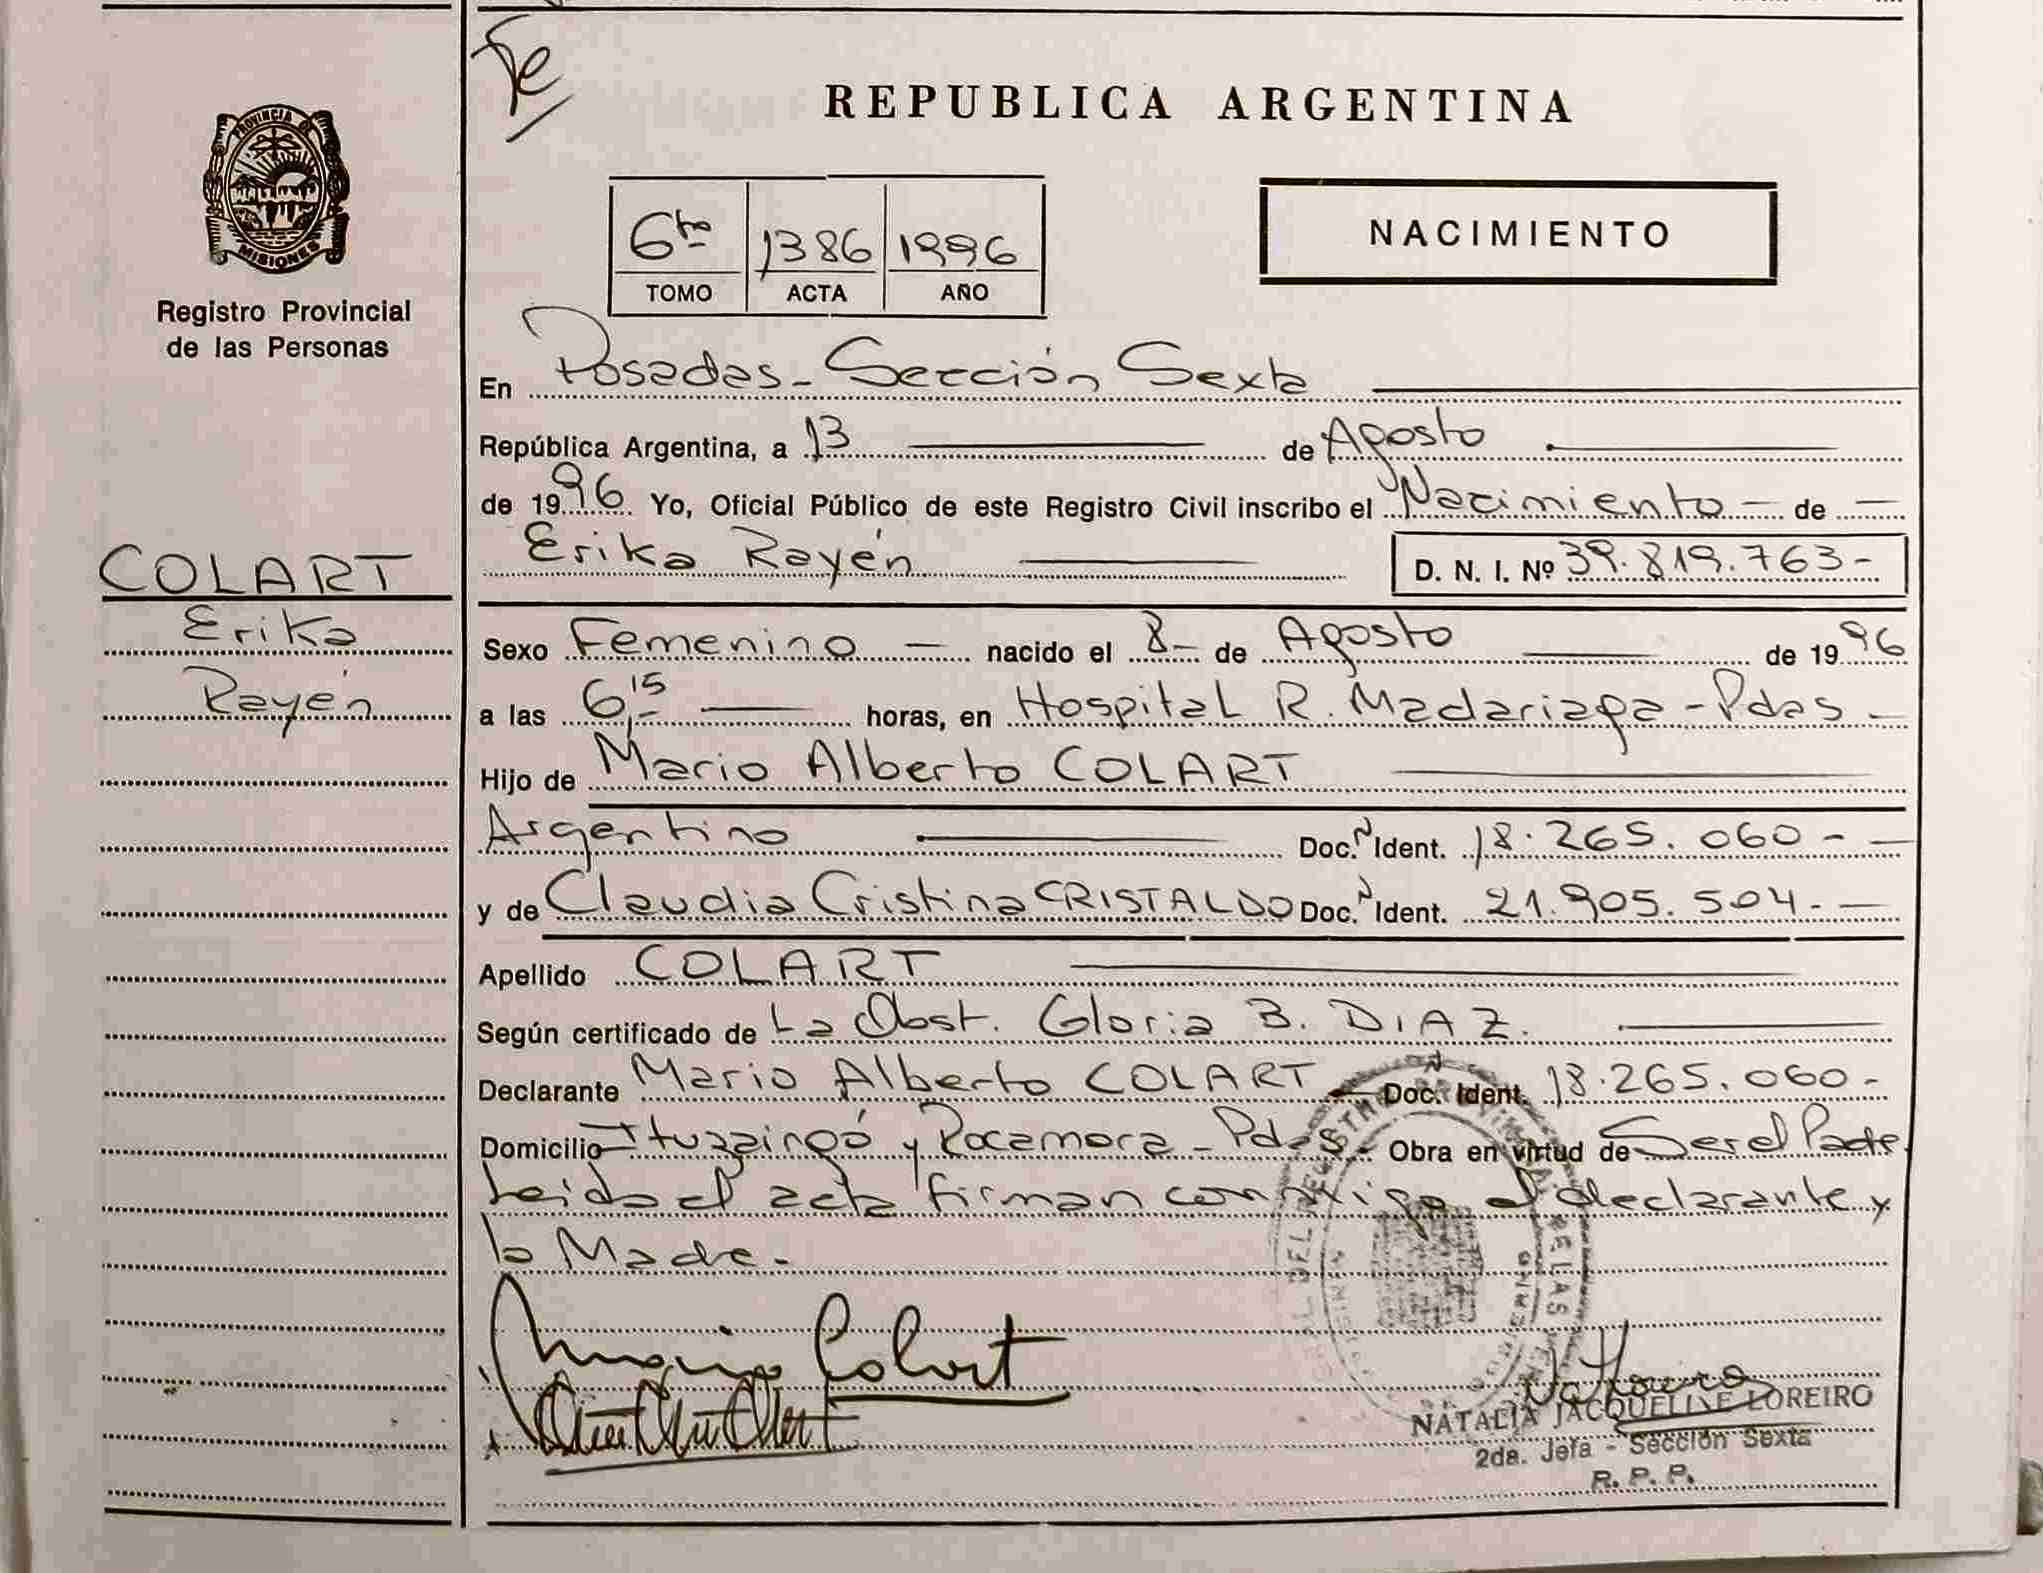 PROVINCIA DE
MISIONES
Registro Provincial
de las Personas
COLART
Erika
Rayén
REPUBLICA ARGENTINA
6to 1386 1996
TOMO ACTA AÑO
NACIMIENTO
En Posadas - Sección Sexta
República Argentina, a 13 de Agosto
de 1996 Yo, Oficial Público de este Registro Civil inscribo el Nacimiento - de -
Erika Rayén D. N. I. Nº 39.819.763-
Sexo Femenino - nacido el 8- de Agosto de 1996
a las 6,15 horas, en Hospital R. Madariaga - Pdas -
Hijo de Mario Alberto COLART
Argentino Doc. N Ident. 18.265.060 - -
y de Claudia Cristina CRISTALDO Doc. N Ident. 21.905.504. -
Apellido COLART
Según certificado de La Obst. Gloria B. DIAZ.
Declarante Mario Alberto COLART - Doc. N Ident. 18.265.060 -
Domicilio Ituzaingó y Rocamora - Pdas - Obra en virtud de Ser el Padre
Leida el acta firman conmigo el declarante y
la Madre.
Mario Colart
NATALIA JACQUELINE LOREIRO
2da. Jefa - Sección Sexta
R. P. P.